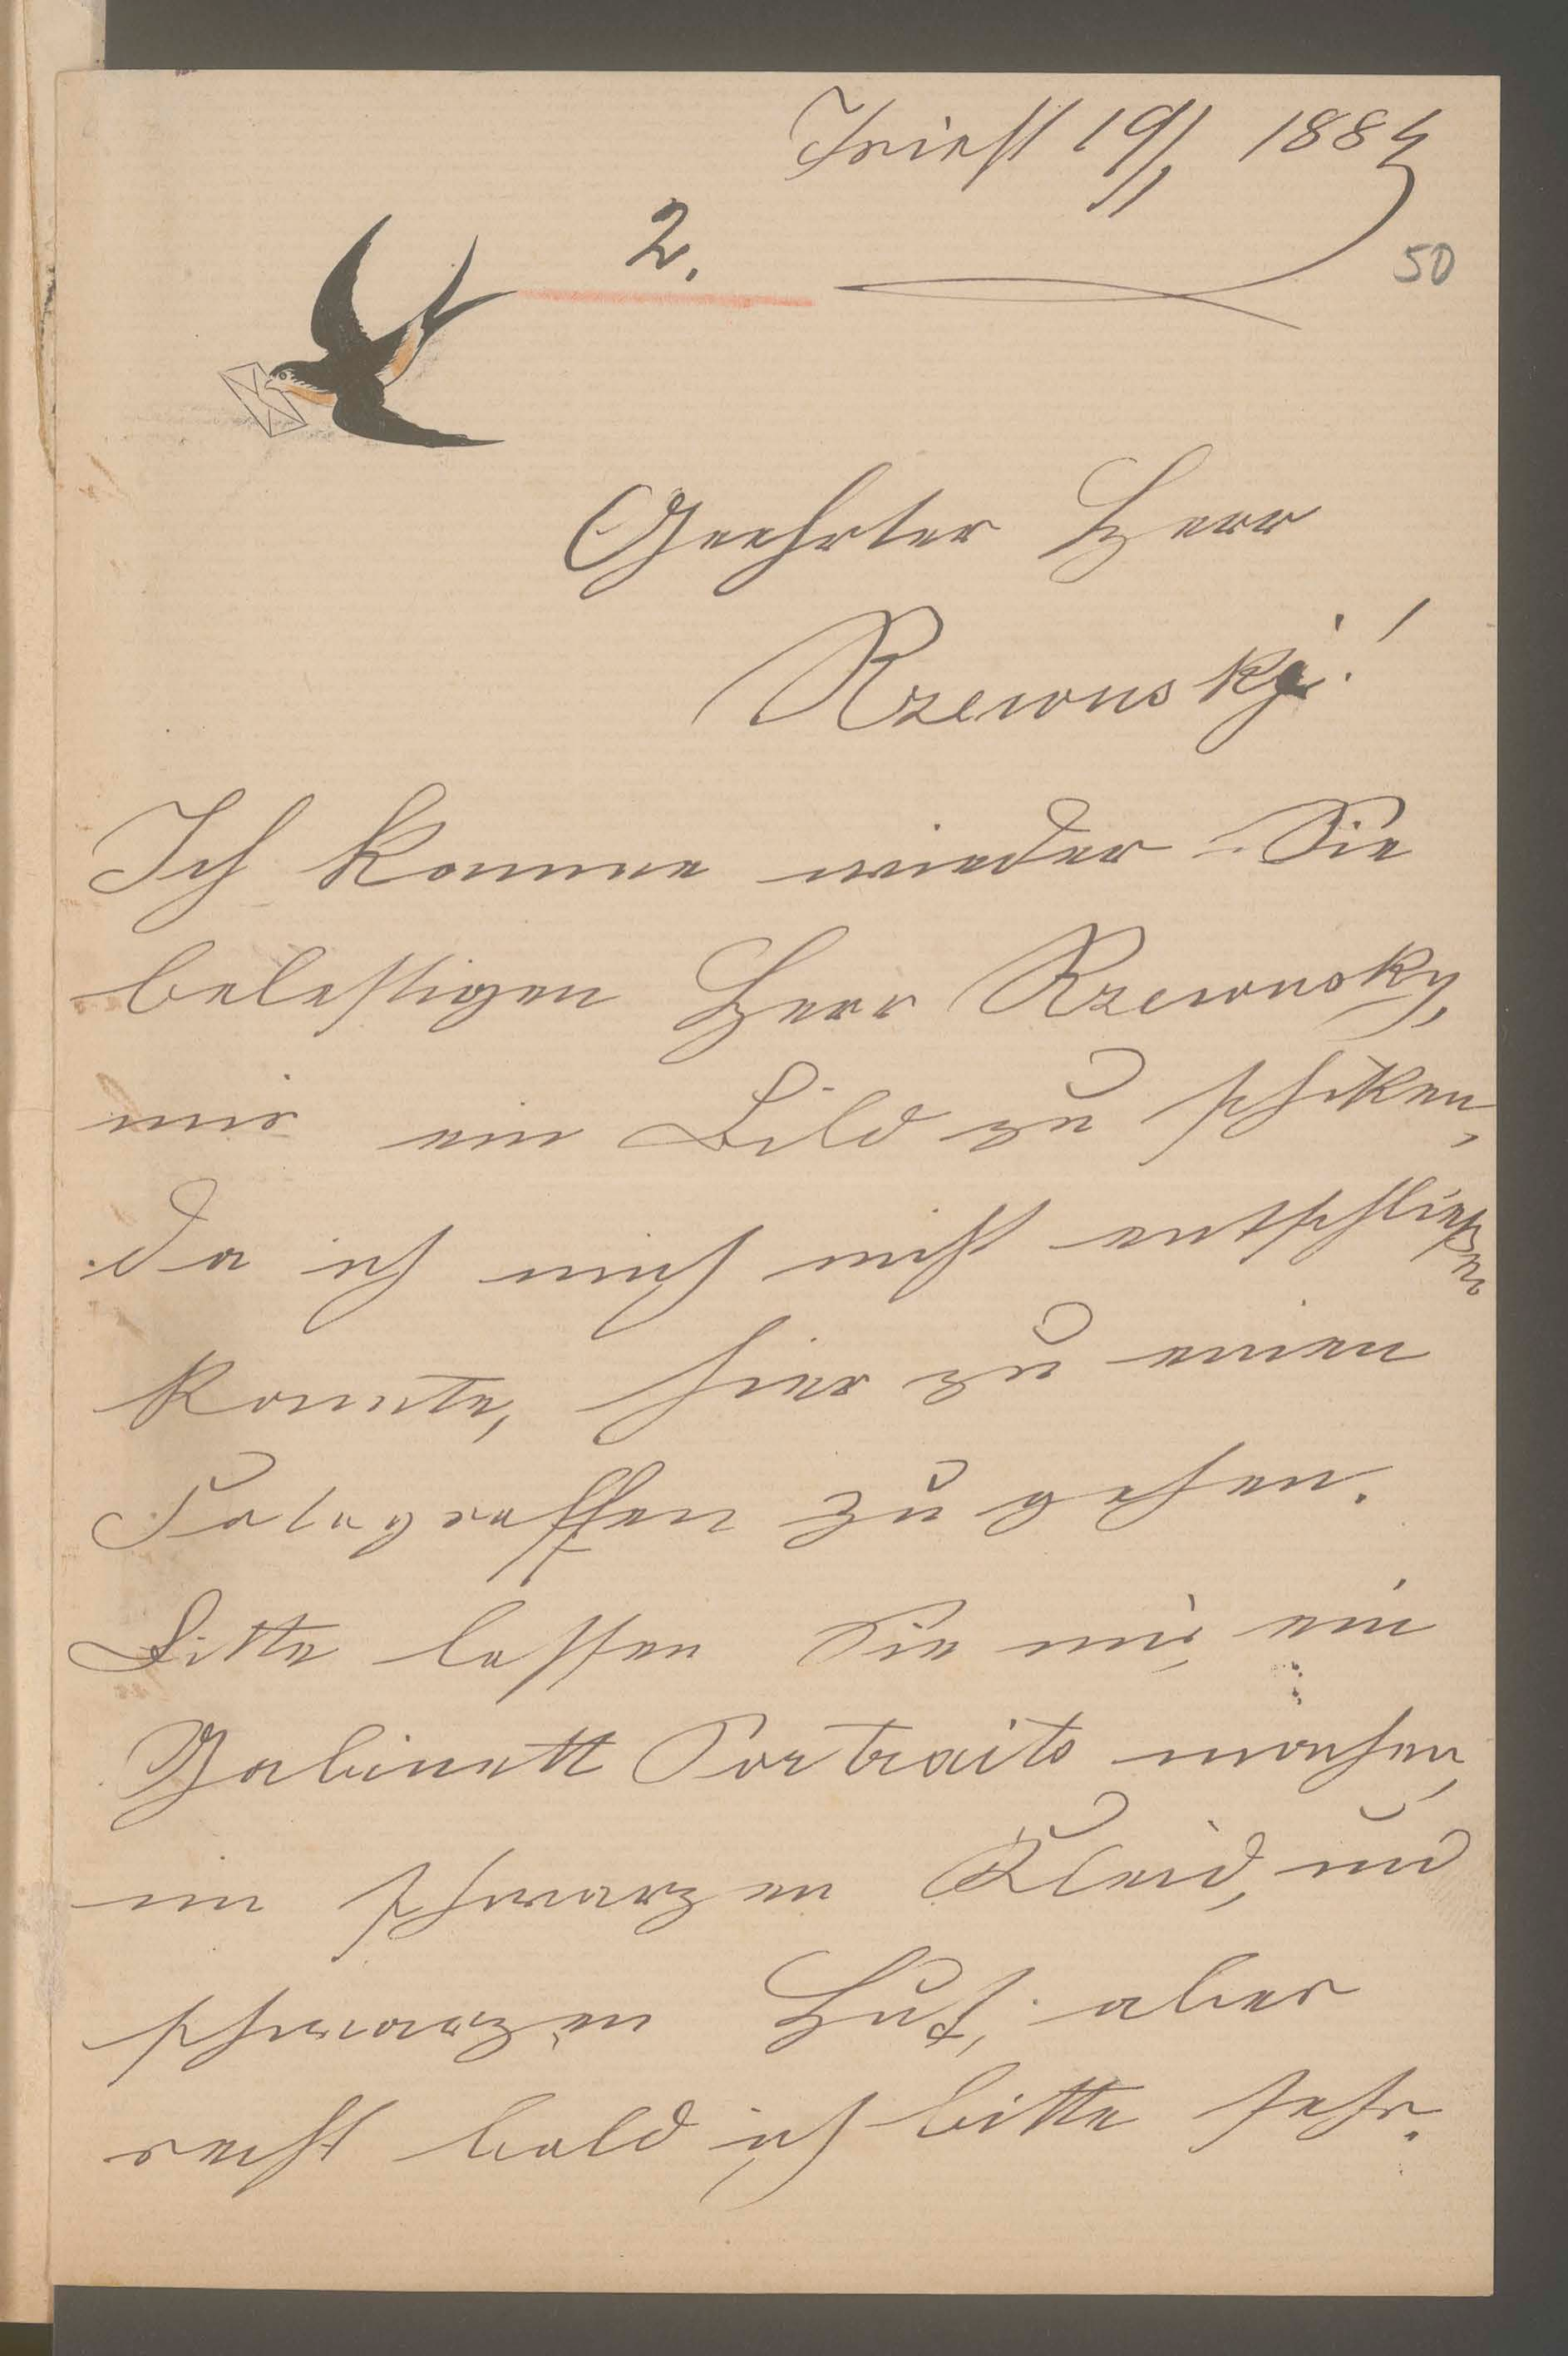 Triest 19/1 1884
2.
50
Geehrter Herr
Rzewusky!
Ich komme wieder Sie
belestigen Herr Rzewusky,
mir ein Bild zu schiken,
da ich mich nicht entschließen
konnte, hier zu einen
Fotograffen zu gehen.
Bitte lassen Sie mir ein
Gabinett Portraits machen,
im schwarzen Kleid, und
schwarzen Hut, aber
recht bald ich bitte sehr.